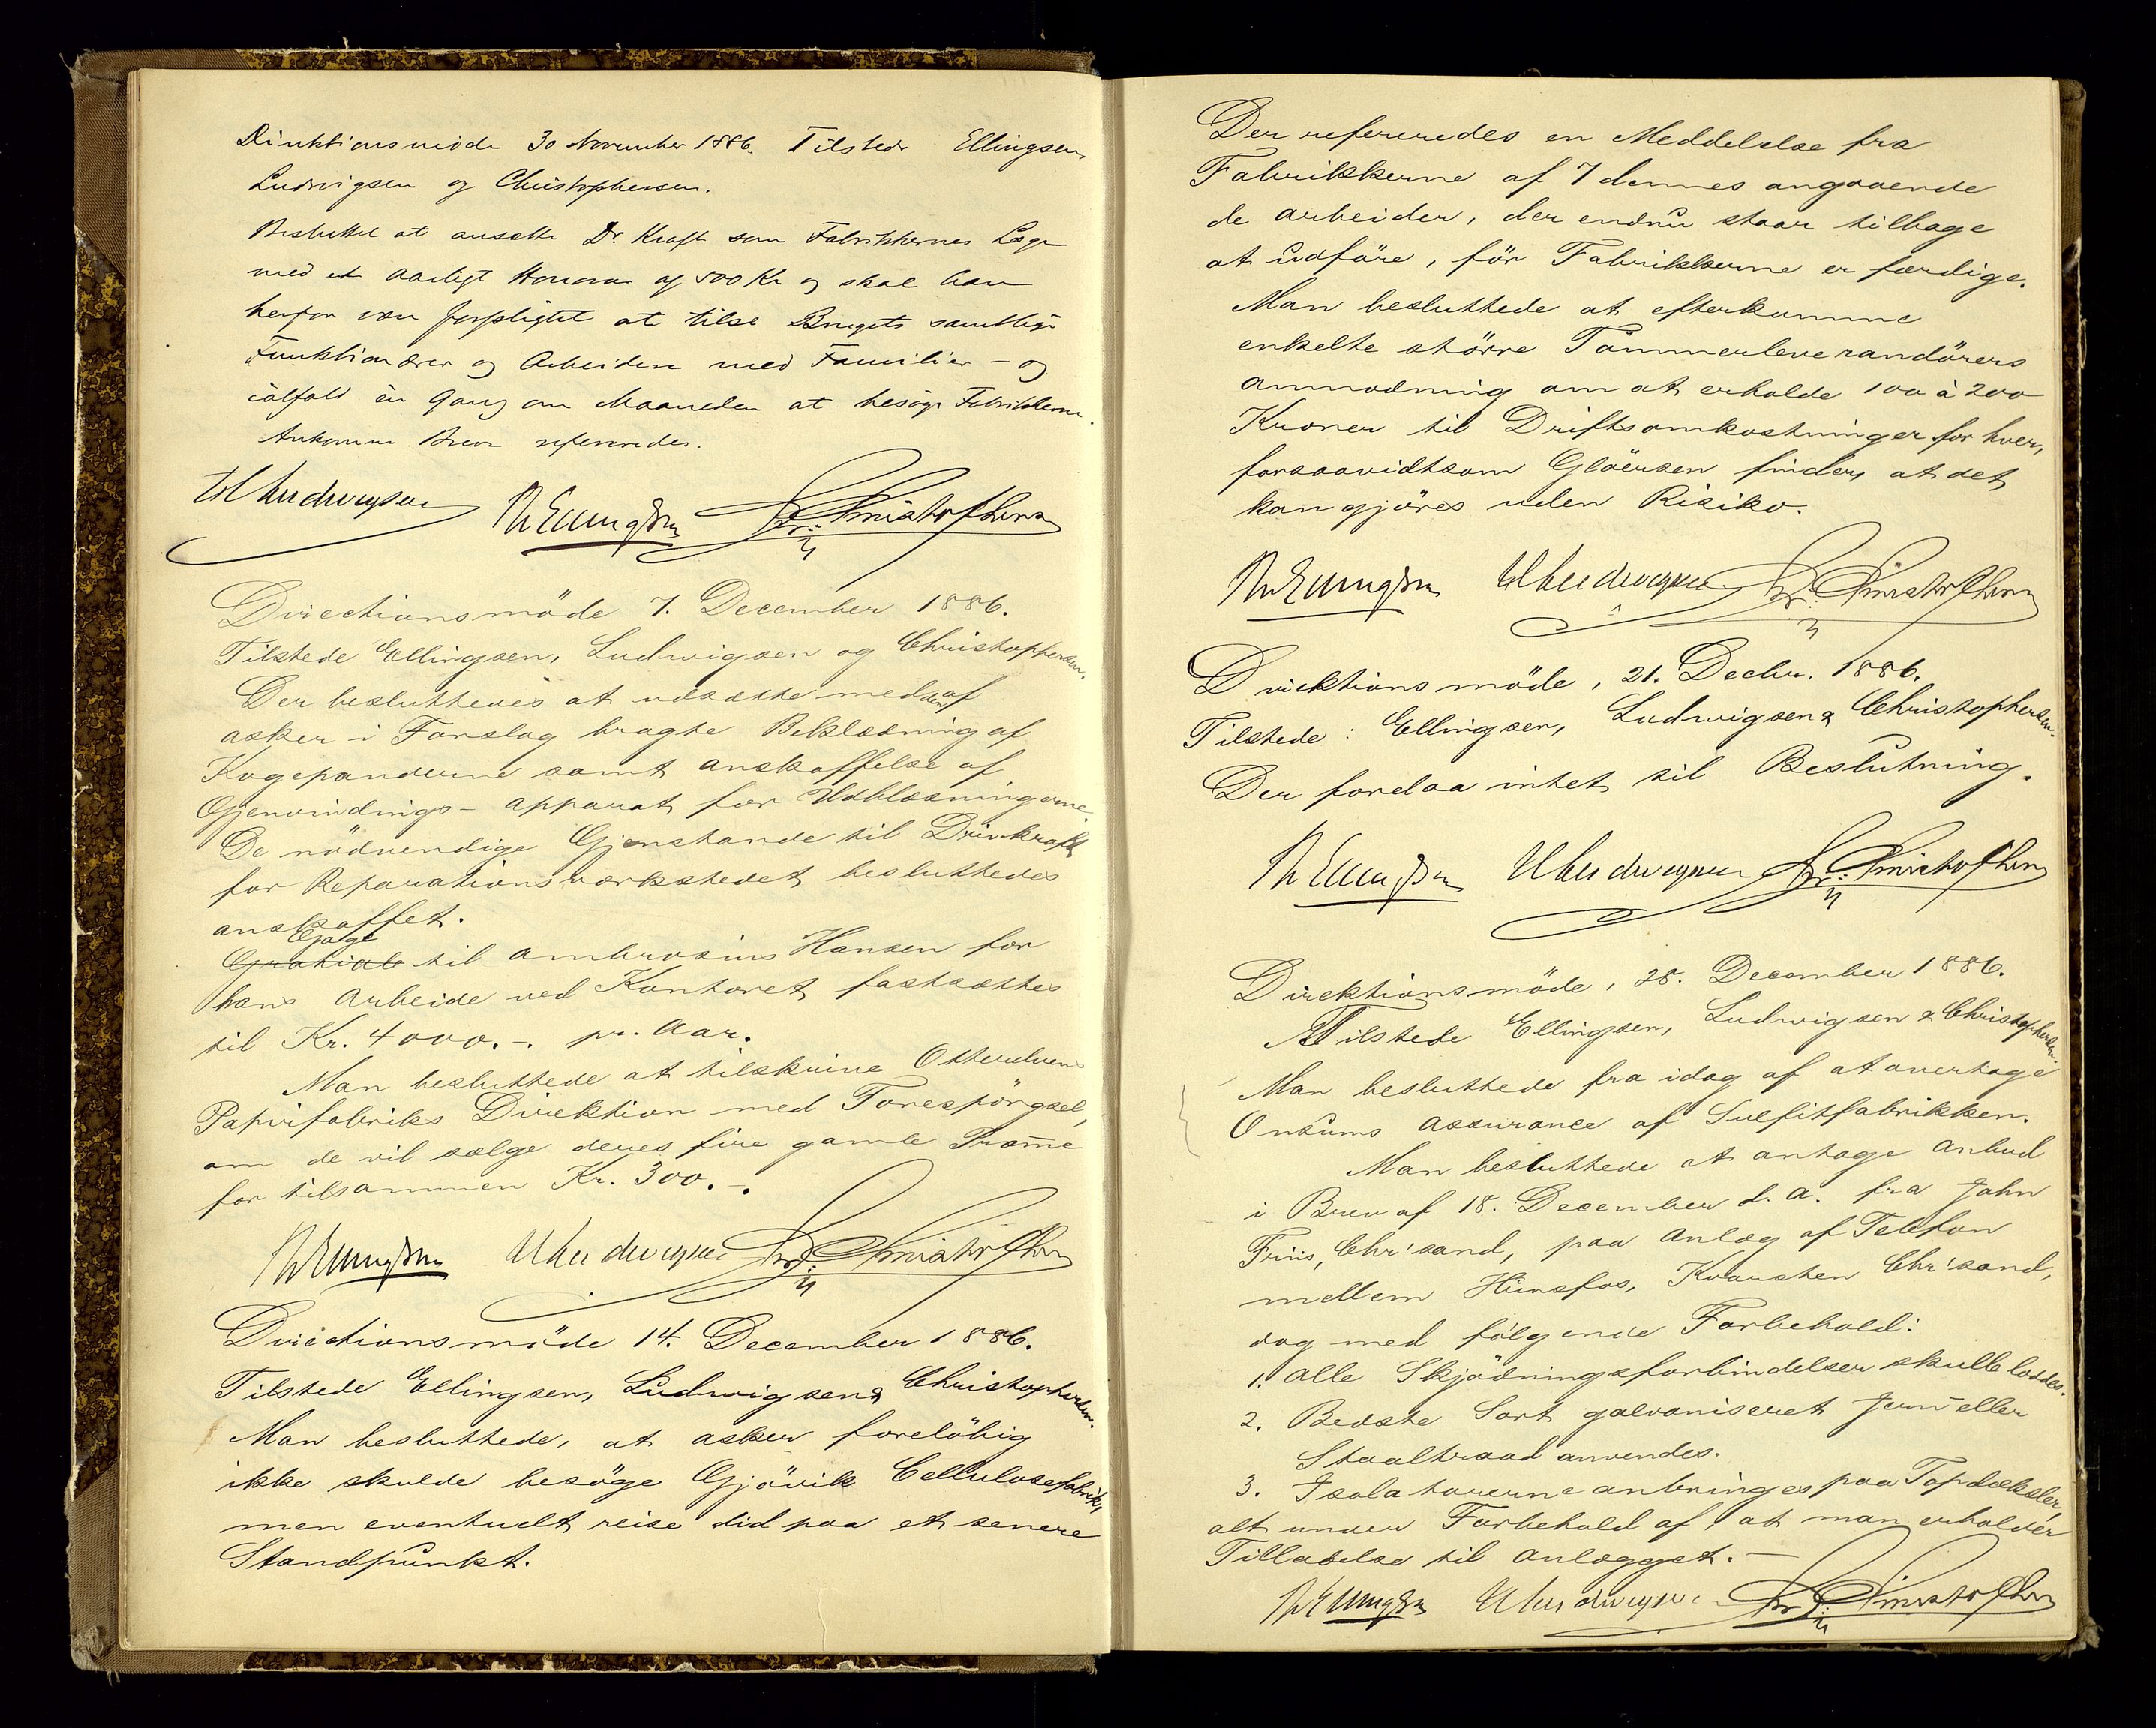 Direktionsmöde 30 November 1886. Tilstede Ellingsen,
Ludvigsen og Christophersen.
Besluttet at ansette Dr. Kraft som Fabrikkernes Læge
med et aarligt Honorar af 500 Kr og skal han
herfor være forpligtet at tilse Brugets samtlige
Funktionærer og Arbeidere med Familier – og
ialfald én Gang om Maaneden at besøge Fabrikkerne.
Ankomne Breve refereredes.
Ludwigsen Ellingsen Christophersen
Directionsmöde 7. December 1886.
Tilstede Ellingsen, Ludwigsen og Christophersen.
Der besluttedes at udsætte med den af
Asker i Forslag bragte Beklædning af
Kogepanderne samt Anskaffelse af
Gjenvindings-Apparat for Udblæsningerne
De nödvendige Gjenstande til Drivkraft
for Reparationsværkstedet besluttedes
anskaffet.
Gage
Gratiale til Ambrosius Hansen for
hans Arbeide ved Kontoret fastsættes
til Kr. 4000.-. pr. Aar.
Man besluttede at tilskrive Otterelvens
Papirfabriks Direktion med Forespörgsel,
om de vil sælge deres fire gamle Pramme
for tilsammen Kr. 300.-.
Ellingsen Ludwigsen Christophersen
Directionsmöde 14. December 1886.
Tilstede Ellingsen, Ludwigsen & Christophersen.
Man besluttede, at Asker forelöbig
ikke skulde besöge Gjövik Cellulosefabrik,
men eventuelt reise did paa et senere
Standpunkt.
Der refereredes en Meddelelse fra
Fabrikkerne af 7 dennes angaaende
de Arbeider, der endnu staar tilbage
at udföre, för Fabrikkerne er færdige.
Man besluttede at efterkomme
enkelte större Tömmerleverandörers
Anmodning om at erholde 100 à 200
Kroner til Driftsomkostninger for hver,
forsaavidtsom Glöersen finder, at det
kan gjöres uden Risiko.
Ellingsen Ludwigsen Christophersen
Direktionsmöde, 21. Decbr. 1886.
Tilstede: Ellingsen, Ludwigsen & Christophersen.
Der forelaa intet til Beslutning.
Ellingsen Ludwigsen Christophersen
Direktionsmöde, 28. December 1886.
Tilstede Ellingsen, Ludwigsen & Christophersen.
Man besluttede fra idag af at overtage
Onsums Assurance af Sulfitfabrikken.
Man besluttede at antage Anbud
i Brev af 18. December d. A. fra John
Friis, Chr'sand, paa Anlæg af Telefon
mellem Hunsfos, Kvarsten Chr'sand,
dog med fölgende Forbehold:
1. Alle Skjödningsforbindelser skulle loddes.
2. Bedste Sort galvaniseret Jern eller
Staaltraad anvendes.
3. Isolatorerne anbringes paa Topdæksler,
alt under Forbehold af, at man erholder
Tilladelse til Anlægget. –
Ellingsen Ludwigsen Christophersen